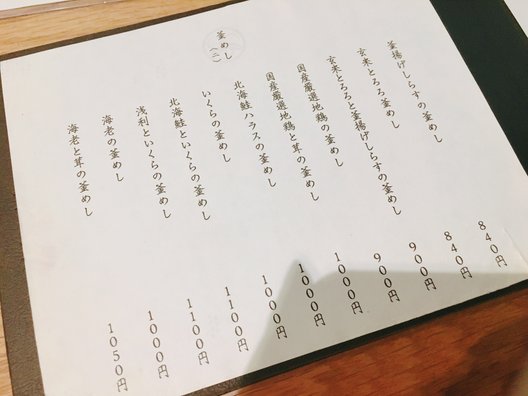 釜めし（二）
釜揚げしらすの釜めし
840円
玄米とろろ釜めし
840円
玄米とろろと釜揚げしらすの釜めし
900円
国産厳選地鶏の釜めし
900円
国産厳選地鶏と茸の釜めし
1000円
北海鮭ハラスの釜めし
1000円
いくらの釜めし
1000円
北海鮭といくらの釜めし
1100円
浅利といくらの釜めし
1100円
海老の釜めし
1000円
海老と茸の釜めし
1050円